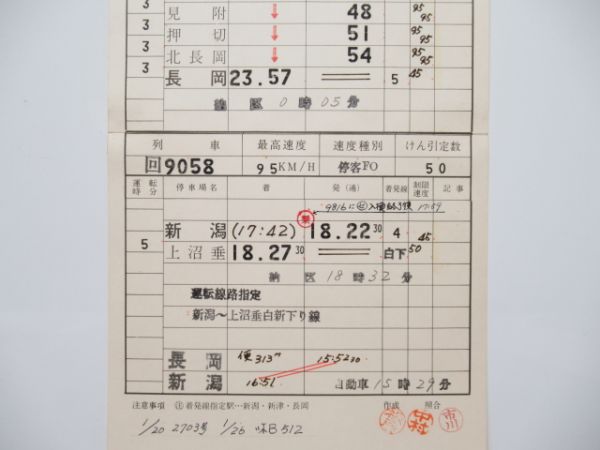 3 見附 ↓ 48 95 95
3 押切 ↓ 51 95 95
3 北長岡 ↓ 54 95 95
3 長岡 23.57 ═ 5 45
納区 0時05分
列車 最高速度 速度種別 けん引定数
回9058 95KM/H 停客F0 50
運転時分 停車場名 着 発(通) 着発線 制限速度 記事
17:59
新潟 (17:42) 18.22 30 4 45
5 上沼垂 18.27 30 ═ 白下 50
納区 18時32分
運転線路指定
新潟～上沼垂白新下り線
長岡 便313M 15:52 30
新潟 16:51 自動車 15時29分
注意事項 着発線指定駅…新潟・新津・長岡 作成 照合
1/20 2703号 1/26 B512
中村 市川